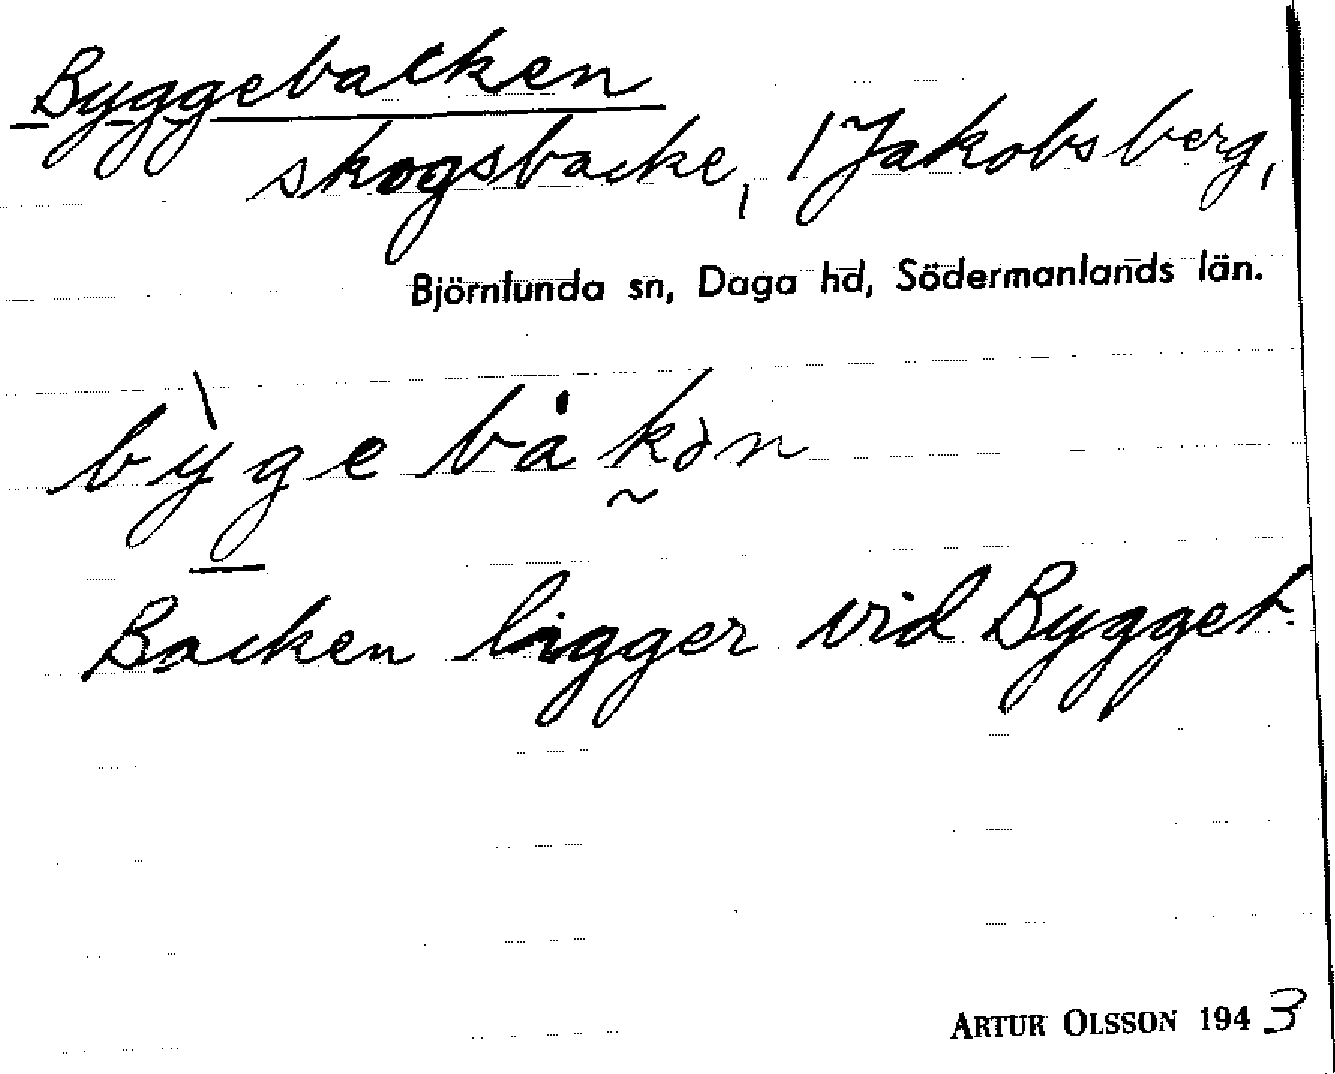 Byggebacken
skogsbacke, 1 Jakobsberg,
Björnlunda sn, Daga hd, Södermanlands län.
bỳgebȧkən
Backen ligger vid Bygget.
ARTUR OLSSON 1943